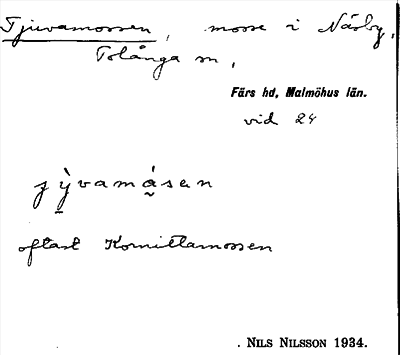 Tjuvamossen, mosse i Näsby,
Tolånga sn,
Färs hd, Malmöhus län.
vid 24
oftast Kornittamossen
. NILS NILSSON 1934.